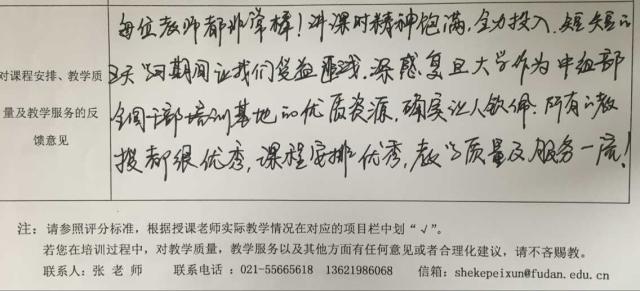 每位老师都非常棒！讲课时精神饱满，全力投入，短短的
对课程安排、教学质
五天学习期间让我们受益匪浅。深感复旦大学作为中组部
量及教学服务的反
全国干部培训基地的优质资源，确实让人钦佩。所有的教
馈意见
授都很优秀，课程安排优秀，教学质量及服务一流！
注：请参照评分标准，根据授课老师实际教学情况在对应的项目栏中划“√”。
若您在培训过程中，对教学质量，教学服务以及其他方面有任何意见或者合理化建议，请不吝赐教。
联系人：张 老 师 联系电话：021-55665618 13621986068 信箱：shekepeixun@fudan.edu.cn